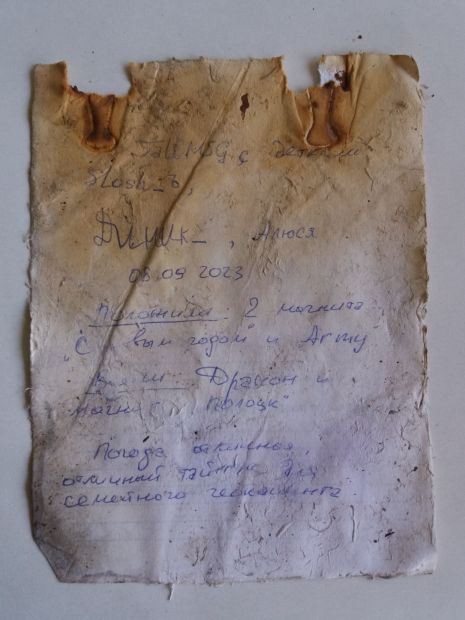 с детьми
Slosh_Ъ,
Димик_, Алюся
08.09.2023
Положили: 2 магнита
"С
вым годом" и
Взяли: Дракон и
магнит "Полоцк"
Погода отличная,
отличный тайник для
семейного геокэшинга